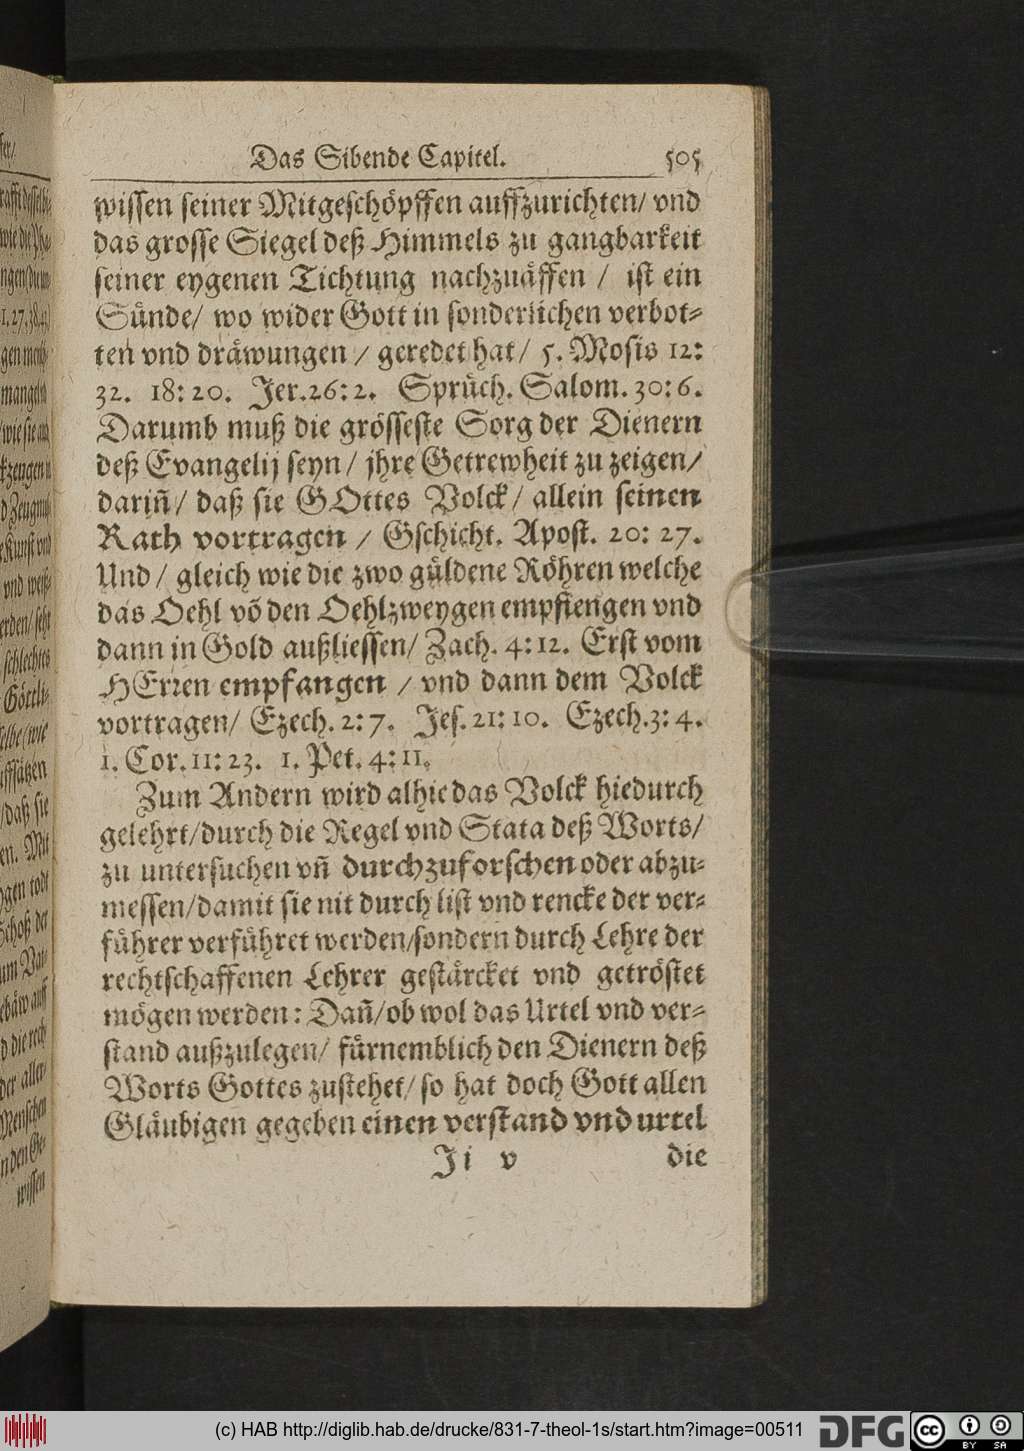 Das Sibende Capitel. 505
wissen seiner Mitgeschöpffen auffzurichten/ vnd
das grosse Siegel deß Himmels zu gangbarkeit
seiner eygenen Tichtung nachzuäffen / ist ein
Sünde/ wo wider Gott in sonderlichen verbot⸗
ten vnd dräwungen / geredet hat/ 5. Mosis 12:
32. 18: 20. Jer. 26: 2. Sprüch. Salom. 30: 6.
Darumb muß die grösseste Sorg der Dienern
deß Evangelij seyn / jhre Getrewheit zu zeigen/
dariñ/ daß sie GOttes Volck / allein seinen
Rath vortragen / Gschicht. Apost. 20: 27.
Und / gleich wie die zwo güldene Röhren welche
das Oehl võ den Oehlzweygen empfiengen vnd
dann in Gold außliessen/ Zach. 4: 12. Erst vom
HErren empfangen / vnd dann dem Volck
vortragen/ Ezech. 2: 7. Jes. 21: 10. Ezech. 3: 4.
1. Cor. 11: 23. 1. Pet. 4: 11.
Zum Andern wird alhie das Volck hiedurch
gelehrt/durch die Regel vnd Stata deß Worts/
zu untersuchen vñ durchzuforschen oder abzu⸗
messen/damit sie nit durch list vnd rencke der ver⸗
führer verführet werden/sondern durch Lehre der
rechtschaffenen Lehrer gestärcket vnd getröstet
mögen werden: Dañ/ob wol das Urtel vnd ver⸗
stand außzulegen/ fürnemblich den Dienern deß
Worts Gottes zustehet/ so hat doch Gott allen
Gläubigen gegeben einen verstand vnd urtel
Ji v die
(c) HAB http://diglib.hab.de/drucke/831-7-theol-1s/start.htm?image=00511
DFG
cc BY SA